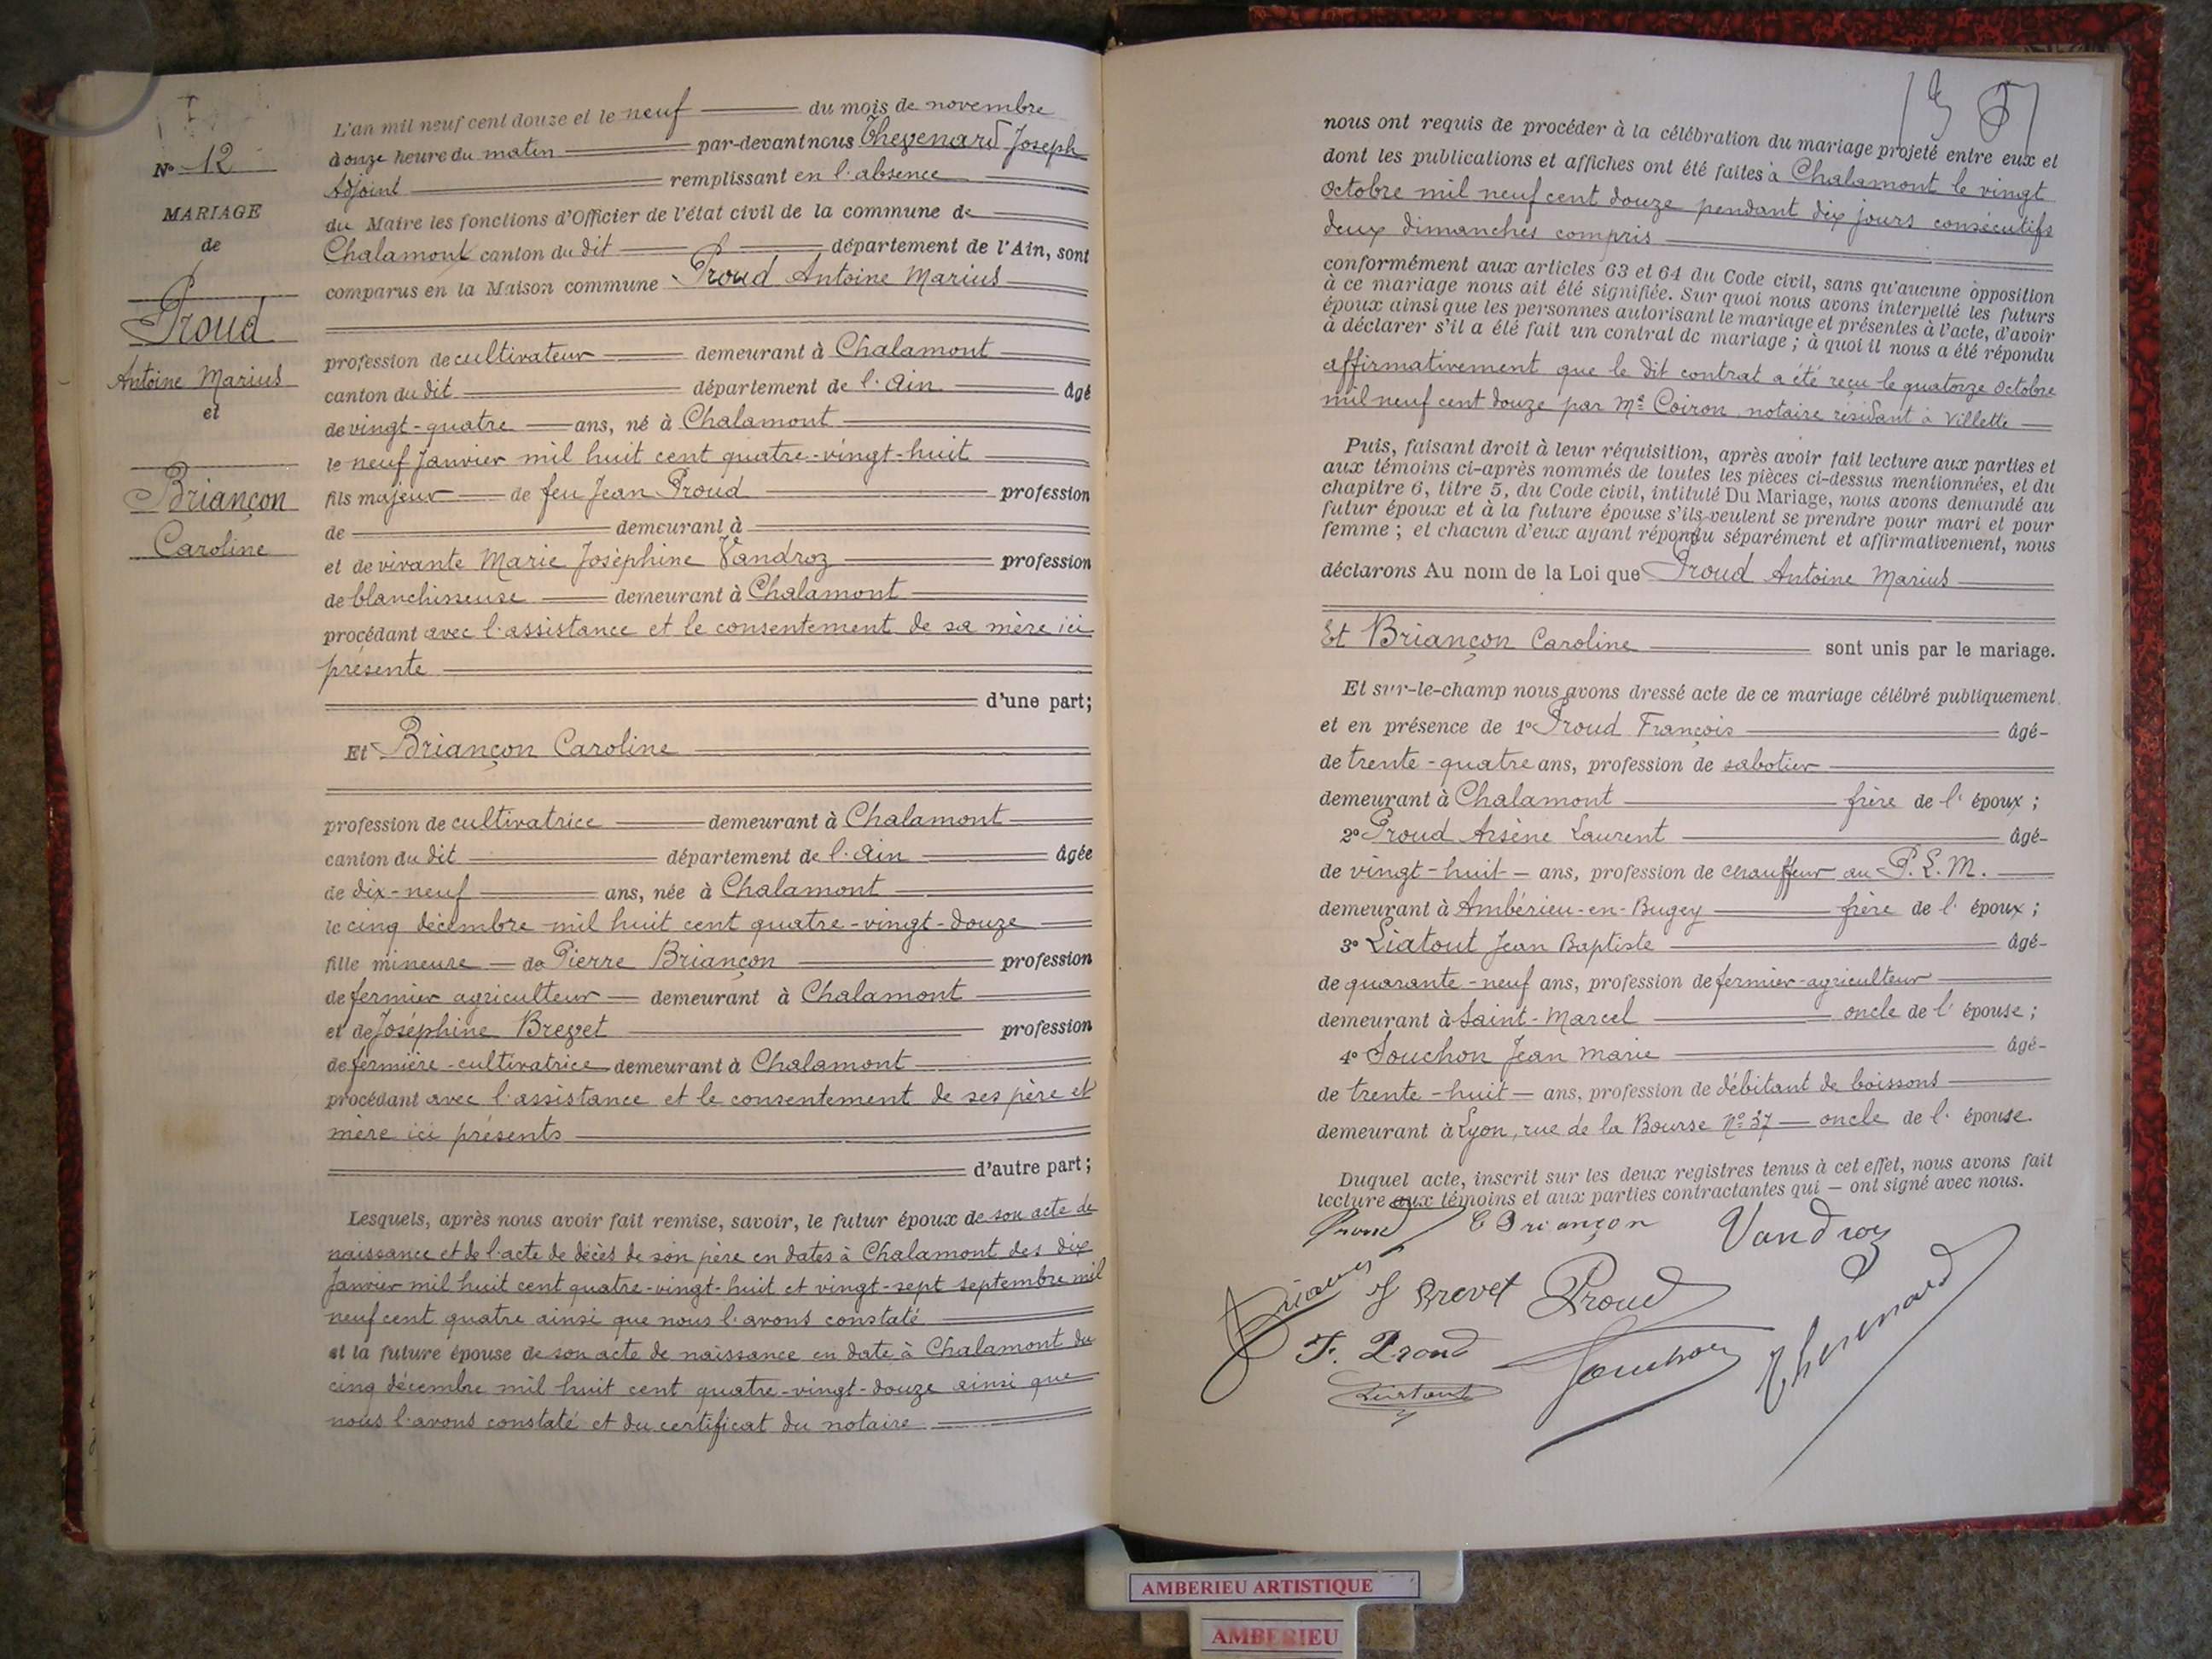 N° 12
MARIAGE
de
Proud
Antoine Marius
et
Briançon
Caroline
L'an mil neuf cent douze et le neuf du mois de novembre
à onze heure du matin par-devant nous Thevenard Joseph
Adjoint remplissant en l'absence
du Maire les fonctions d'Officier de l'état civil de la commune de
Chalamont canton du dit département de l'Ain, sont
comparus en la Maison commune Proud Antoine Marius
profession de cultivateur demeurant à Chalamont
canton du dit département de l'Ain âgé
de vingt-quatre ans, né à Chalamont
le neuf Janvier mil huit cent quatre-vingt-huit
fils majeur de feu Jean Proud profession
de demeurant à
et de vivante Marie Joséphine Vandroz profession
de blanchisseuse demeurant à Chalamont
procédant avec l'assistance et le consentement de sa mère ici
présente
d'une part;
Et Briançon Caroline
profession de cultivatrice demeurant à Chalamont
canton du dit département de l'Ain âgée
de dix-neuf ans, née à Chalamont
le cinq décembre mil huit cent quatre-vingt-douze
fille mineure de Pierre Briançon profession
de fermier agriculteur demeurant à Chalamont
et de Joséphine Brevet profession
de fermière-cultivatrice demeurant à Chalamont
procédant avec l'assistance et le consentement de ses père et
mère ici présents
d'autre part;
Lesquels, après nous avoir fait remise, savoir, le futur époux de son acte de
naissance et de l'acte de décès de son père en dates à Chalamont des dix
Janvier mil huit cent quatre-vingt-huit et vingt-sept septembre mil
neuf cent quatre ainsi que nous l'avons constaté
et la future épouse de son acte de naissance en date à Chalamont du
cinq décembre mil huit cent quatre-vingt-douze ainsi que
nous l'avons constaté et du certificat du notaire
nous ont requis de procéder à la célébration du mariage projeté entre eux et
dont les publications et affiches ont été faites à Chalamont le vingt
octobre mil neuf cent douze pendant dix jours consécutifs
deux dimanches compris
conformément aux articles 63 et 64 du Code civil, sans qu'aucune opposition
à ce mariage nous ait été signifiée. Sur quoi nous avons interpellé les futurs
époux ainsi que les personnes autorisant le mariage et présentes à l'acte, d'avoir
à déclarer s'il a été fait un contrat de mariage; à quoi il nous a été répondu
affirmativement que le dit contrat a été reçu le quatorze octobre
mil neuf cent douze par Me Coiron notaire résidant à Villette
Puis, faisant droit à leur réquisition, après avoir fait lecture aux parties et
aux témoins ci-après nommés de toutes les pièces ci-dessus mentionnées, et du
chapitre 6, titre 5, du Code civil, intitulé Du Mariage, nous avons demandé au
futur époux et à la future épouse s'ils veulent se prendre pour mari et pour
femme; et chacun d'eux ayant répondu séparément et affirmativement, nous
déclarons Au nom de la Loi que Proud Antoine Marius
Et Briançon Caroline sont unis par le mariage.
Et sur-le-champ nous avons dressé acte de ce mariage célébré publiquement
et en présence de 1° Proud François âgé
de trente-quatre ans, profession de sabotier
demeurant à Chalamont frère de l'époux;
2° Proud Arsène Laurent âgé
de vingt-huit ans, profession de chauffeur au P.L.M.
demeurant à Ambérieu-en-Bugey frère de l'époux;
3° Liatout Jean Baptiste âgé
de quarante-neuf ans, profession de fermier-agriculteur
demeurant à Saint-Marcel oncle de l'épouse;
4° Souchon Jean Marie âgé
de trente-huit ans, profession de débitant de boissons
demeurant à Lyon, rue de la Bourse N° 37 oncle de l'épouse.
Duquel acte, inscrit sur les deux registres tenus à cet effet, nous avons fait
lecture aux témoins et aux parties contractantes qui ont signé avec nous.
Proud C Briançon Vandroz
Briançon J Brevet Proud
F. Proud Souchon Thevenard
Liatout
AMBERIEU ARTISTIQUE
AMBERIEU